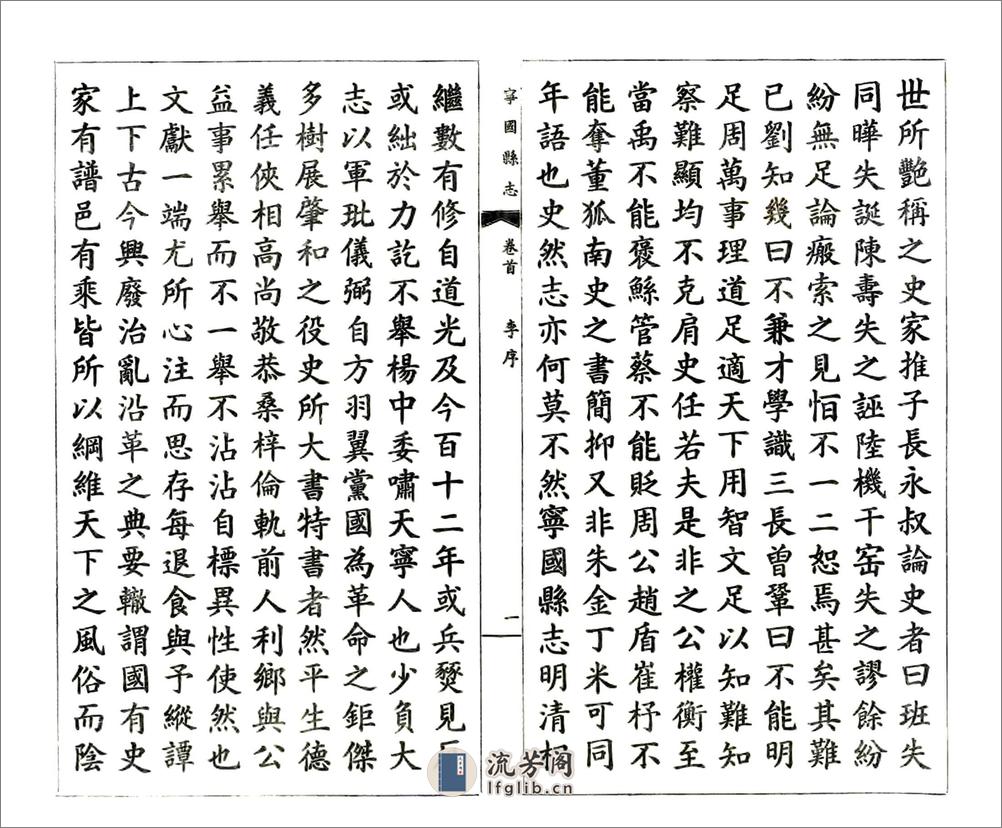 世所艷稱之史家推子長永叔論史者曰班失
同曄失誕陳壽失之誣陸機干窑失之謬餘紛
紛無足論瘢索之見怕不一二恕焉甚矣其難
已劉知幾曰不兼才學識三長曾鞏曰不能明
足周萬事理道足適天下用智文足以知難知
察難顯均不克肩史任若夫是非之公權衡至
當禹不能褒鯀管蔡不能貶周公趙盾崔杼不
能奪董狐南史之書簡抑又非朱金丁米可同
年語也史然志亦何莫不然寧國縣志明清相
寧國縣志
卷首
李序
一
繼數有修自道光及今百十二年或兵燹見
或絀於力訖不舉楊中委嘯天寧人也少負大
志以軍玭儀弼自方羽翼黨國為革命之鉅傑
多樹展肇和之役史所大書特書者然平生德
義任俠相高尚敬恭桑梓倫軌前人利鄉與公
益事累舉而不一舉不沾沾自標異性使然也
文獻一端尤所心注而思存每退食與予縱譚
上下古今興廢治亂沿革之典要轍謂國有史
家有譜邑有乘皆所以綱維天下之風俗而陰
流芳閣
lfglib.cn